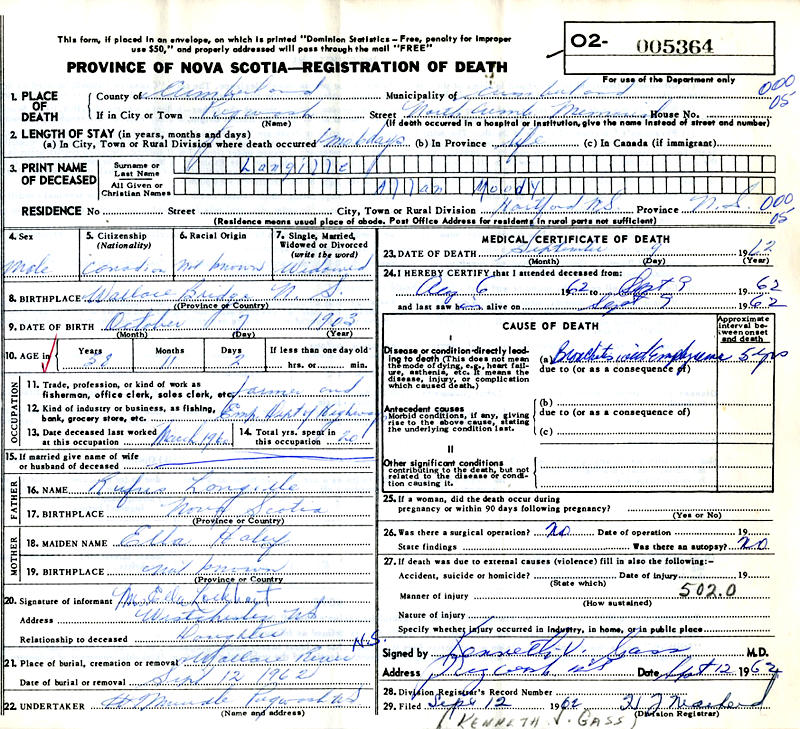 This form, if placed in an envelope, on which is printed "Dominion Statistics – Free, penalty for improper
use $50," and properly addressed will pass through the mail "FREE"
PROVINCE OF NOVA SCOTIA—REGISTRATION OF DEATH
02- 005364
For use of the Department only
1. PLACE OF DEATH
County of Cumberland Municipality of Cumberland 000
If in City or Town Pugwash Street North Cumb. Memorial House No. 05
(Name) (If death occurred in a hospital or institution, give the name instead of street and number)
2. LENGTH OF STAY (in years, months and days)
(a) In City, Town or Rural Division where death occurred (b) In Province life (c) In Canada (if immigrant)
3. PRINT NAME OF DECEASED
Surname or Last Name Langille
All Given or Christian Names Allan Moody
RESIDENCE No Street City, Town or Rural Division Hartford N.S. Province N.S. 000
05
(Residence means usual place of abode. Post Office Address for residents in rural parts not sufficient)
4. Sex
male
5. Citizenship (Nationality)
Canadian
6. Racial Origin
not known
7. Single, Married, Widowed or Divorced (write the word)
Widowed
8. BIRTHPLACE Wallace Bridge N.S.
(Province or Country)
9. DATE OF BIRTH October 7 1903
(Month) (Day) (Year)
10. AGE in
Years 58
Months 11
Days 2
If less than one day old
hrs. or min.
OCCUPATION
11. Trade, profession, or kind of work as
fisherman, office clerk, sales clerk, etc. Farmer and
12. Kind of industry or business, as fishing,
bank, grocery store, etc. Emp. Dept of Highway
13. Date deceased last worked
at this occupation March 1962
14. Total yrs. spent in
this occupation 20
15. If married give name of wife
or husband of deceased
FATHER
16. NAME Rufus Langille
17. BIRTHPLACE Nova Scotia
(Province or Country)
MOTHER
18. MAIDEN NAME Ella Haley
19. BIRTHPLACE not known
(Province or Country)
20. Signature of informant
Address Westchester NS
Relationship to deceased Daughter
N.S.
21. Place of burial, cremation or removal Wallace River
Date of burial or removal Sept 12 1962
22. UNDERTAKER Pugwash NS
(Name and address)
MEDICAL CERTIFICATE OF DEATH
23. DATE OF DEATH September 9 1962
(Month) (Day) (Year)
24. I HEREBY CERTIFY that I attended deceased from:
Aug 6 1962 to Sept 9 1962
and last saw him alive on Sept 9 1962
CAUSE OF DEATH
Approximate interval between onset and death
I
Disease or condition directly leading to death (This does not mean the mode of dying, e.g., heart failure, asthenia, etc. It means the disease, injury, or complication which caused death.)
(a) Bronchitis and Emphysema 5 yrs
due to (or as a consequence of)
Antecedent causes
Morbid conditions, if any, giving rise to the above cause, stating the underlying condition last.
(b)
due to (or as a consequence of)
(c)
II
Other significant conditions
contributing to the death, but not related to the disease or condition causing it.
25. If a woman, did the death occur during
pregnancy or within 90 days following pregnancy?
(Yes or No)
26. Was there a surgical operation? No Date of operation 19
State findings Was there an autopsy? No
27. If death was due to external causes (violence) fill in also the following:–
Accident, suicide or homicide? Date of injury 19
(State which)
Manner of injury 502.0
(How sustained)
Nature of injury
Specify whether injury occurred in industry, in home, or in public place
Signed by Kenneth V. Gass M.D.
Address NS Date Sept 12 1962
28. Division Registrar's Record Number
29. Filed Sept 12 1962
(Division Registrar)
(KENNETH V. GASS)